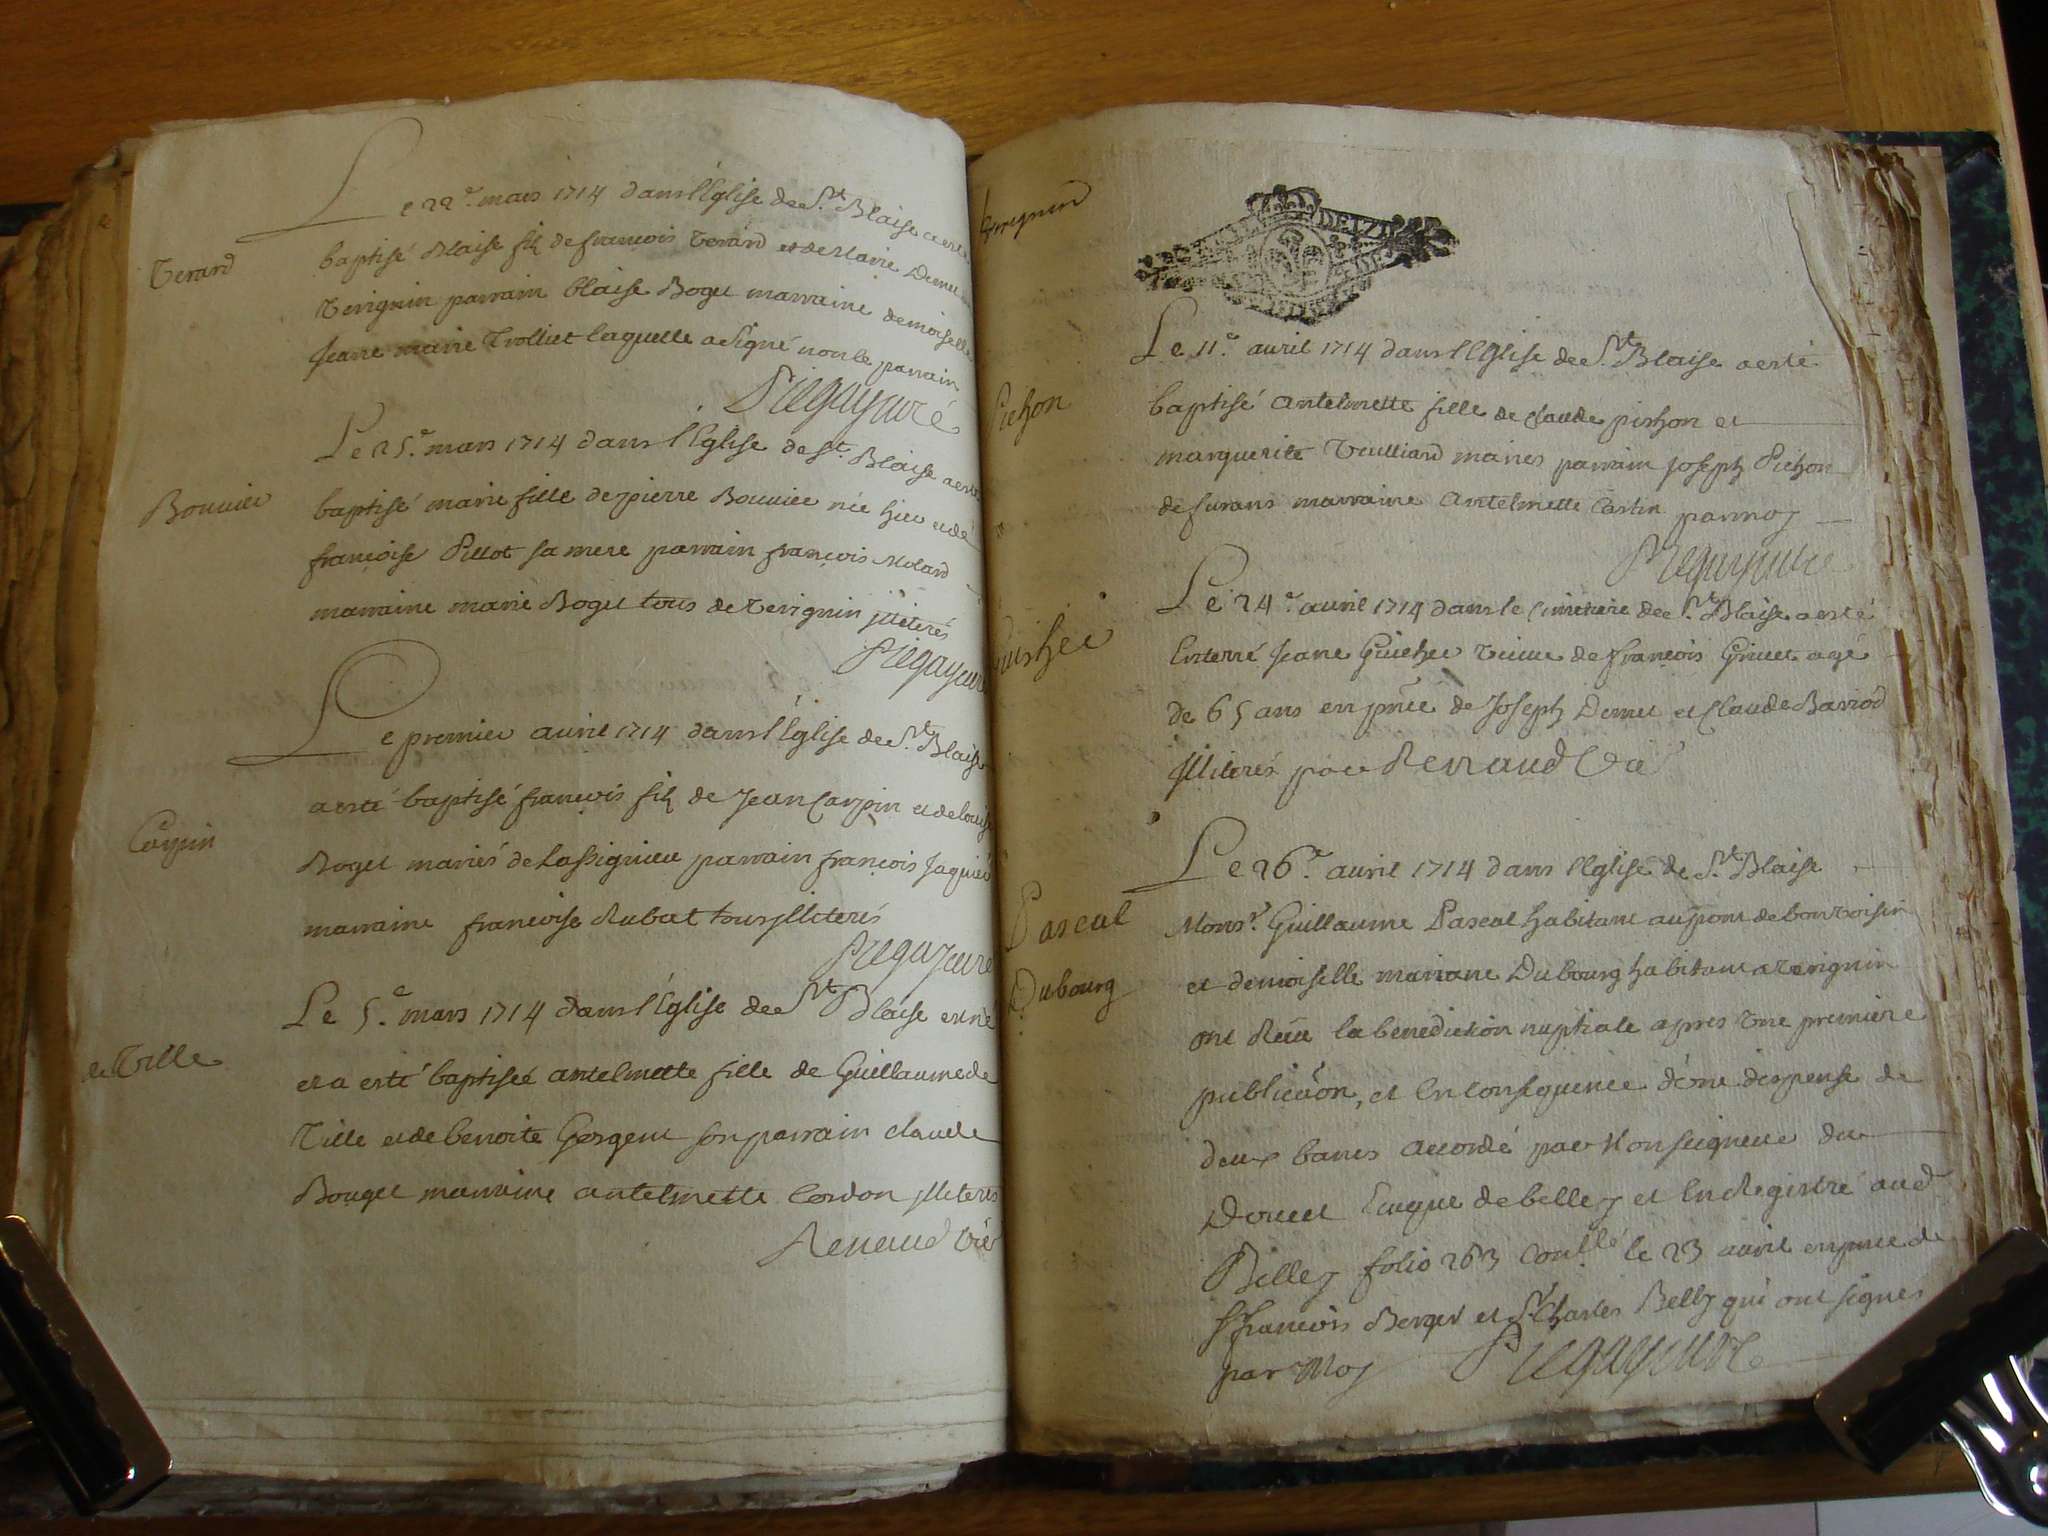 Le 22e. mars 1714 dans l'Eglise de St. Blaise a este
Verard
baptisé Blaise fils de francois Verard et de Claire Demet
Virignin parrain blaise Boget marraine demoiselle
Jeane marie Trolliet laquelle a signé non le parrain
Pregay curé
Le 25e. mars 1714 dans l'Eglise de St. Blaise a este
Bouvier
baptisé marie fille de pierre Bouvier née hier et de
francoise Pillot sa mere parrain francois Molard
marraine marie Boget tous de Virignin jlliterés
Pregay curé
Le premier avril 1714 dans l'Eglise de St. Blaise
a esté baptisé francois fils de Jean Carpin et de louise
Carpin
Boget mariés de Lassignieu parrain francois Jaquier
marraine francoise Rubat tous jlliterés
Pregay curé
Le 5e. mars 1714 dans l'Eglise de St. Blaise est né
de Ville
et a esté baptiseé antelmette fille de Guillaume de
Ville et de benoite Gorgeu son parrain claude
Bouget marraine antelmette Cordon jlliterés
Renaud vic
Virignin
DE DIZ
Le 11e. avril 1714 dans l'Eglise de St. Blaise a esté
Pichon
baptisé antelmette fille de claude pichon et
marguerite Vulliard mariés parrain Joseph Pichon
de surans marraine Antelmette Castin par moy
Pregay curé
Le 24e. avril 1714 dans le cimetiere de St. Blaise a esté
Guicher
Enterré Jeane Guicher veuve de francois Grivet agé
de 65 ans en pnce de Joseph Demet et Claude Bariod
jlliterés par Renaud vic
Le 26e. avril 1714 dans l'Eglise de St. Blaise
Pascal
Monsr. Guillaume Pascal habitant au pont de bonvoisin
Dubourg
et demoiselle mariane Dubourg habitant a virignin
ont Receu la benediction nuptiale apres une premiere
publicaon, et En consequence d'une dispense de
deux bancs accordé par Monseigneur du
Doucet Eveque de belley et Enregistré aud
Belley folio 263 conllé le 23 avril en pnce de
Sr francois Berger et Sr Charles Belly qui ont signés
par Moy Pregay curé